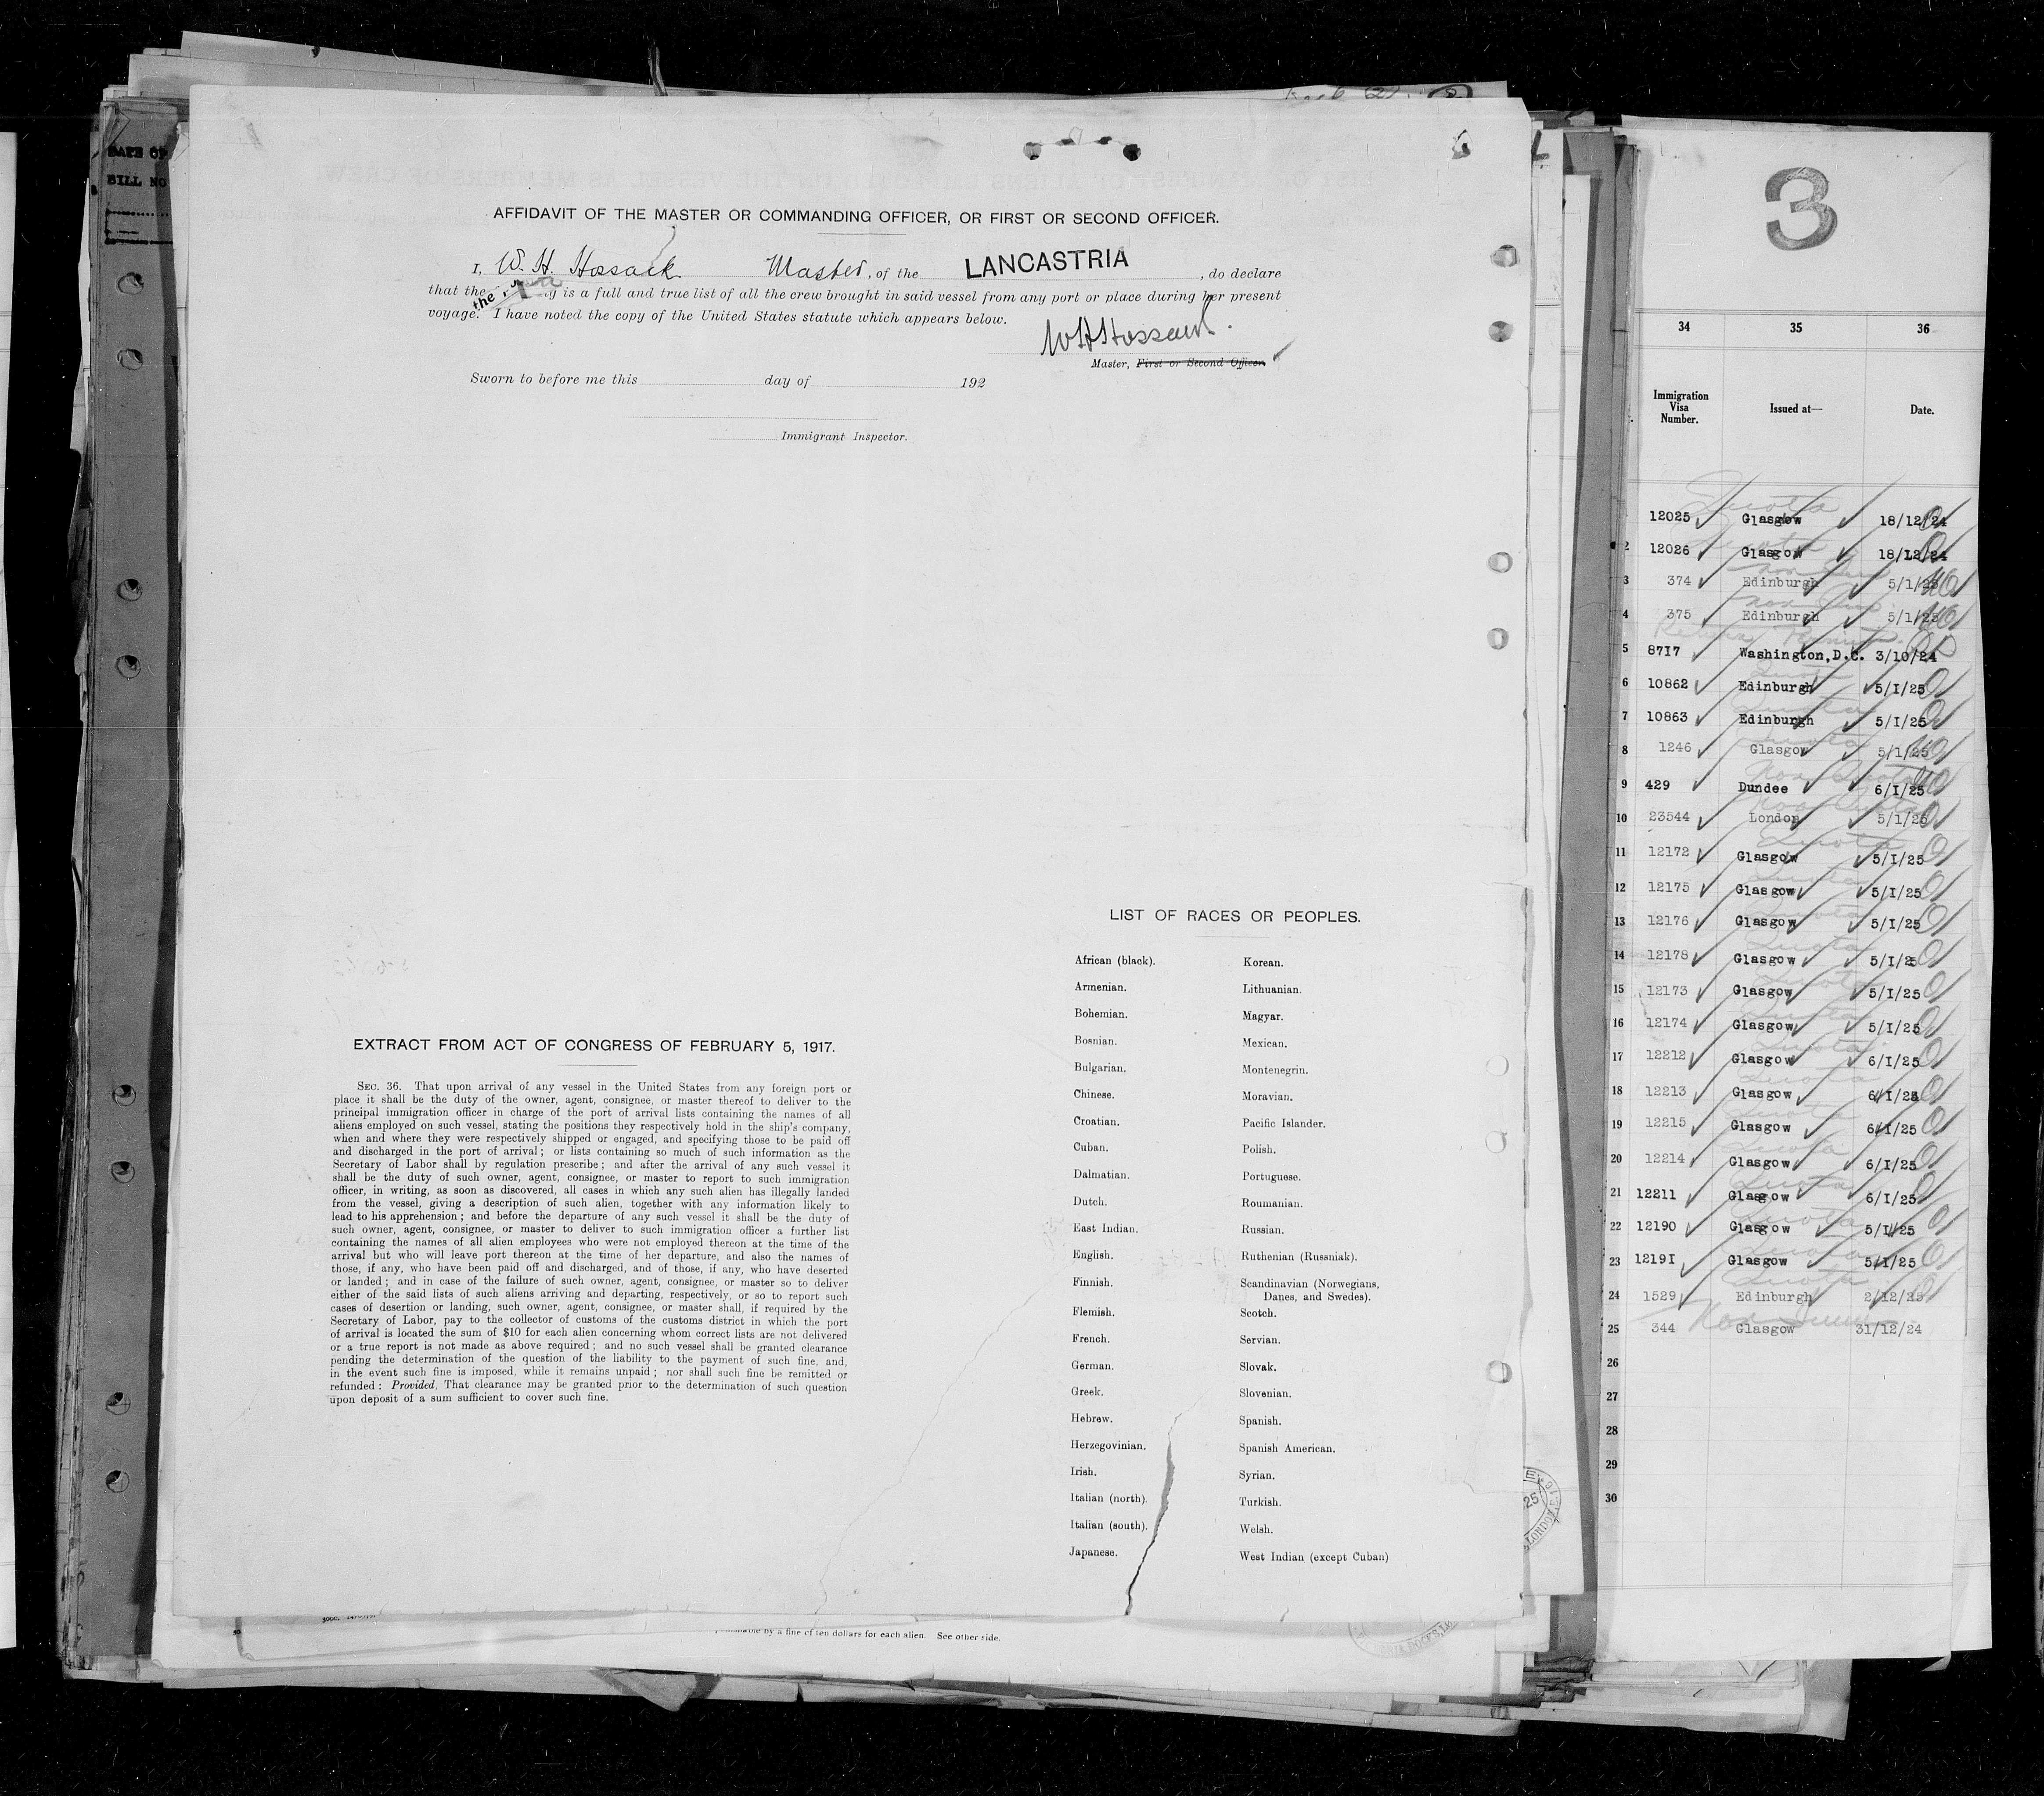 DATE OF
BILL NO
AFFIDAVIT OF THE MASTER OR COMMANDING OFFICER, OR FIRST OR SECOND OFFICER.
I, W. H. Hossack Master, of the LANCASTRIA, do declare
that the is a full and true list of all the crew brought in said vessel from any port or place during her present
voyage. I have noted the copy of the United States statute which appears below.
W H Hossack.
Master, First or Second Officer.
Sworn to before me this day of 192
Immigrant Inspector.
EXTRACT FROM ACT OF CONGRESS OF FEBRUARY 5, 1917.
SEC. 36. That upon arrival of any vessel in the United States from any foreign port or
place it shall be the duty of the owner, agent, consignee, or master thereof to deliver to the
principal immigration officer in charge of the port of arrival lists containing the names of all
aliens employed on such vessel, stating the positions they respectively hold in the ship's company,
when and where they were respectively shipped or engaged, and specifying those to be paid off
and discharged in the port of arrival; or lists containing so much of such information as the
Secretary of Labor shall by regulation prescribe; and after the arrival of any such vessel it
shall be the duty of such owner, agent, consignee, or master to report to such immigration
officer, in writing, as soon as discovered, all cases in which any such alien has illegally landed
from the vessel, giving a description of such alien, together with any information likely to
lead to his apprehension; and before the departure of any such vessel it shall be the duty of
such owner, agent, consignee, or master to deliver to such immigration officer a further list
containing the names of all alien employees who were not employed thereon at the time of the
arrival but who will leave port thereon at the time of her departure, and also the names of
those, if any, who have been paid off and discharged, and of those, if any, who have deserted
or landed; and in case of the failure of such owner, agent, consignee, or master so to deliver
either of the said lists of such aliens arriving and departing, respectively, or so to report such
cases of desertion or landing, such owner, agent, consignee, or master shall, if required by the
Secretary of Labor, pay to the collector of customs of the customs district in which the port
of arrival is located the sum of $10 for each alien concerning whom correct lists are not delivered
or a true report is not made as above required; and no such vessel shall be granted clearance
pending the determination of the question of the liability to the payment of such fine, and,
in the event such fine is imposed, while it remains unpaid; nor shall such fine be remitted or
refunded: Provided, That clearance may be granted prior to the determination of such question
upon deposit of a sum sufficient to cover such fine.
LIST OF RACES OR PEOPLES.
African (black). Korean.
Armenian. Lithuanian.
Bohemian. Magyar.
Bosnian. Mexican.
Bulgarian. Montenegrin.
Chinese. Moravian.
Croatian. Pacific Islander.
Cuban. Polish.
Dalmatian. Portuguese.
Dutch. Roumanian.
East Indian. Russian.
English. Ruthenian (Russniak).
Finnish. Scandinavian (Norwegians,
Danes, and Swedes).
Flemish. Scotch.
French. Servian.
German. Slovak.
Greek. Slovenian.
Hebrew. Spanish.
Herzegovinian. Spanish American.
Irish. Syrian.
Italian (north). Turkish.
Italian (south). Welsh.
Japanese. West Indian (except Cuban)
by a fine of ten dollars for each alien. See other side.
3
34 35 36
Immigration Visa Number. Issued at— Date.
12025 Glasgow 18/12/24
2 12026 Glasgow 18/12/24
3 374 Edinburgh 5/1/25
4 375 Edinburgh 5/1/25
5 8717 Washington,D.C. 3/10/24
6 10862 Edinburgh 5/I/25
7 10863 Edinburgh 5/I/25
8 1246 Glasgow 5/1/25
9 429 Dundee 6/I/25
10 23544 London 5/1/25
11 12172 Glasgow 5/I/25
12 12175 Glasgow 5/I/25
13 12176 Glasgow 5/I/25
14 12178 Glasgow 5/I/25
15 12173 Glasgow 5/I/25
16 12174 Glasgow 5/I/25
17 12212 Glasgow 6/I/25
18 12213 Glasgow 6/I/25
19 12215 Glasgow 6/I/25
20 12214 Glasgow 6/I/25
21 12211 Glasgow 6/I/25
22 12190 Glasgow 5/I/25
23 1219I Glasgow 5/I/25
24 1529 Edinburgh 2/12/25
25 344 Glasgow 31/12/24
26
27
28
29
30